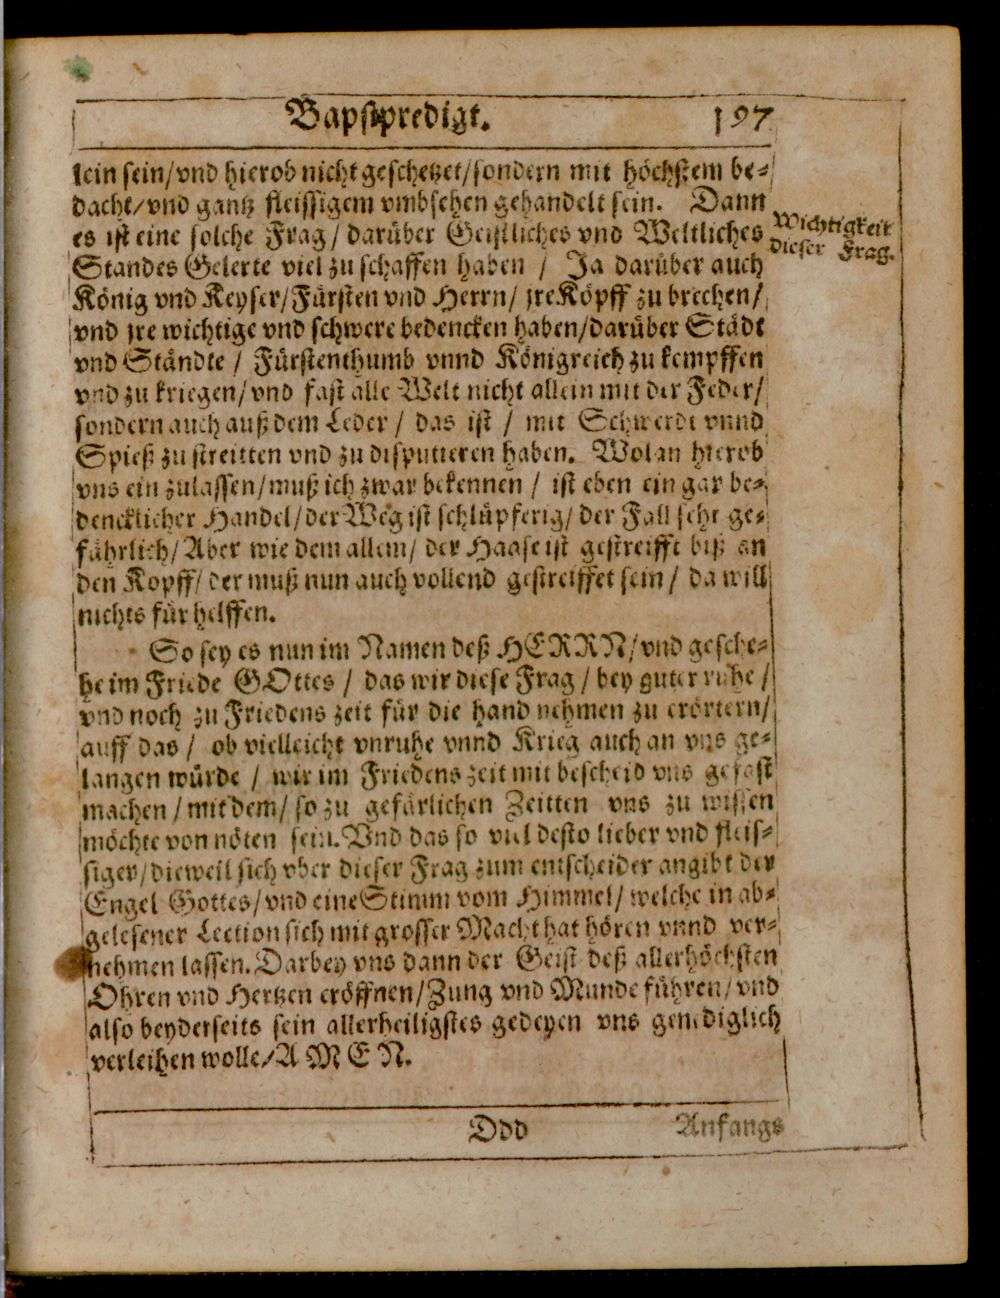 Bapstpredigt. 197
lein sein/vnd hierob nicht geschetzet/sondern mit höchstem be-
dacht/vnd gantz fleissigem vmbsehen gehandelt sein. Dann
es ist eine solche Frag/darüber Geistliches vnd Weltliches
Wichtigkeit
dieser Frag.
Standes Gelerte viel zu schaffen haben / Ja darüber auch
König vnd Keyser/Fürsten vnd Herrn/ jre Köpff zu brechen/
vnd jre wichtige vnd schwere bedencken haben/darüber Städt
vnd Ständte / Fürstenthumb vnnd Königreich zu kempffen
vnd zu kriegen/vnd fast alle Welt nicht allein mit der Feder/
sondern auch auß dem Leder / das ist / mit Schwerdt vnnd
Spieß zu streitten vnd zu disputieren haben. Wolan hierob
vns ein zulassen/muß ich zwar bekennen / ist eben ein gar be-
dencklicher Handel/der Weg ist schlüpferig/ der Fall sehr ge-
fährlich/Aber wie dem allem/ der Haase ist gestreifft biß an
den Kopff/ der muß nun auch vollend gestreiffet sein / da will
nichts für helffen.
So sey es nun im Namen deß HERRN/vnd gesche-
he im Friede GOttes / das wir diese Frag / bey guter ruhe /
vnd noch zu Friedens zeit für die hand nehmen zu erörtern/
auff das / ob vielleicht vnruhe vnnd Krieg auch an vns ge-
langen würde / wir im Friedens zeit mit bescheid vns gefast
machen / mit dem/ so zu gefärlichen Zeitten vns zu wissen
möchte von nöten sein. Vnd das so viel desto lieber vnd fleis-
siger/dieweil sich vber dieser Frag zum entscheider angibt der
Engel Gottes/vnd eine Stimm vom Himmel/ welche in ab-
gelesener Lection sich mit grosser Macht hat hören vnnd ver-
nehmen lassen. Darbey vns dann der Geist deß allerhöchsten
Ohren vnd Hertzen eröffnen/Zung vnd Munde führen/vnd
also beyderseits sein allerheiligstes gedeyen vns genediglich
verleihen wolle/A M E N.
Ddd Anfangs